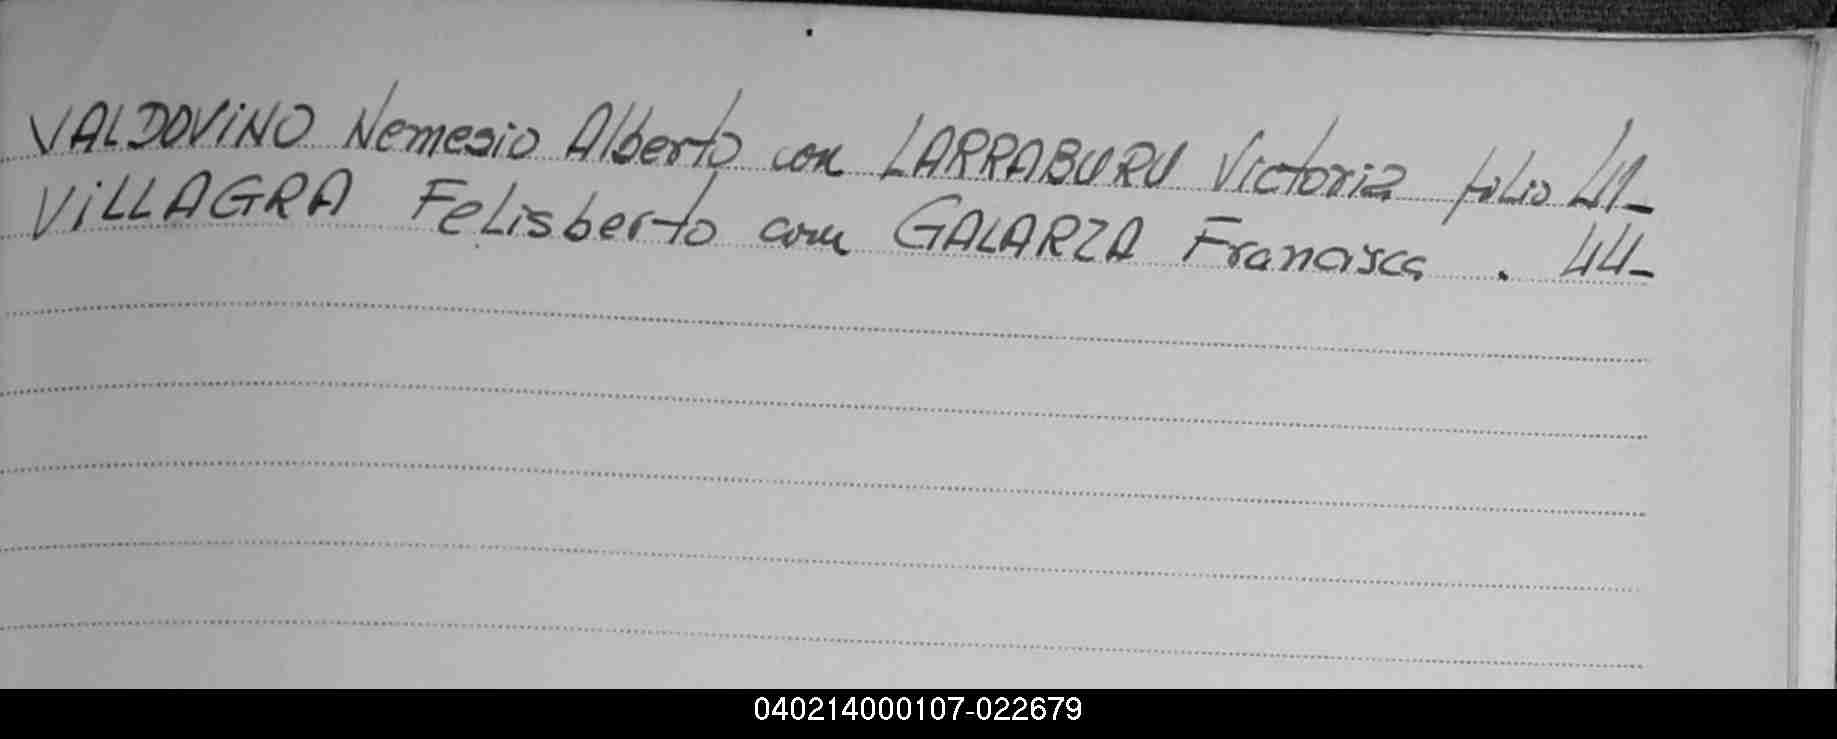 VALDOVINO Nemesio Alberto con LARRABURU Victoria folio 41-
VILLAGRA Felisberto con GALARZA Francisca . 44-
040214000107-022679